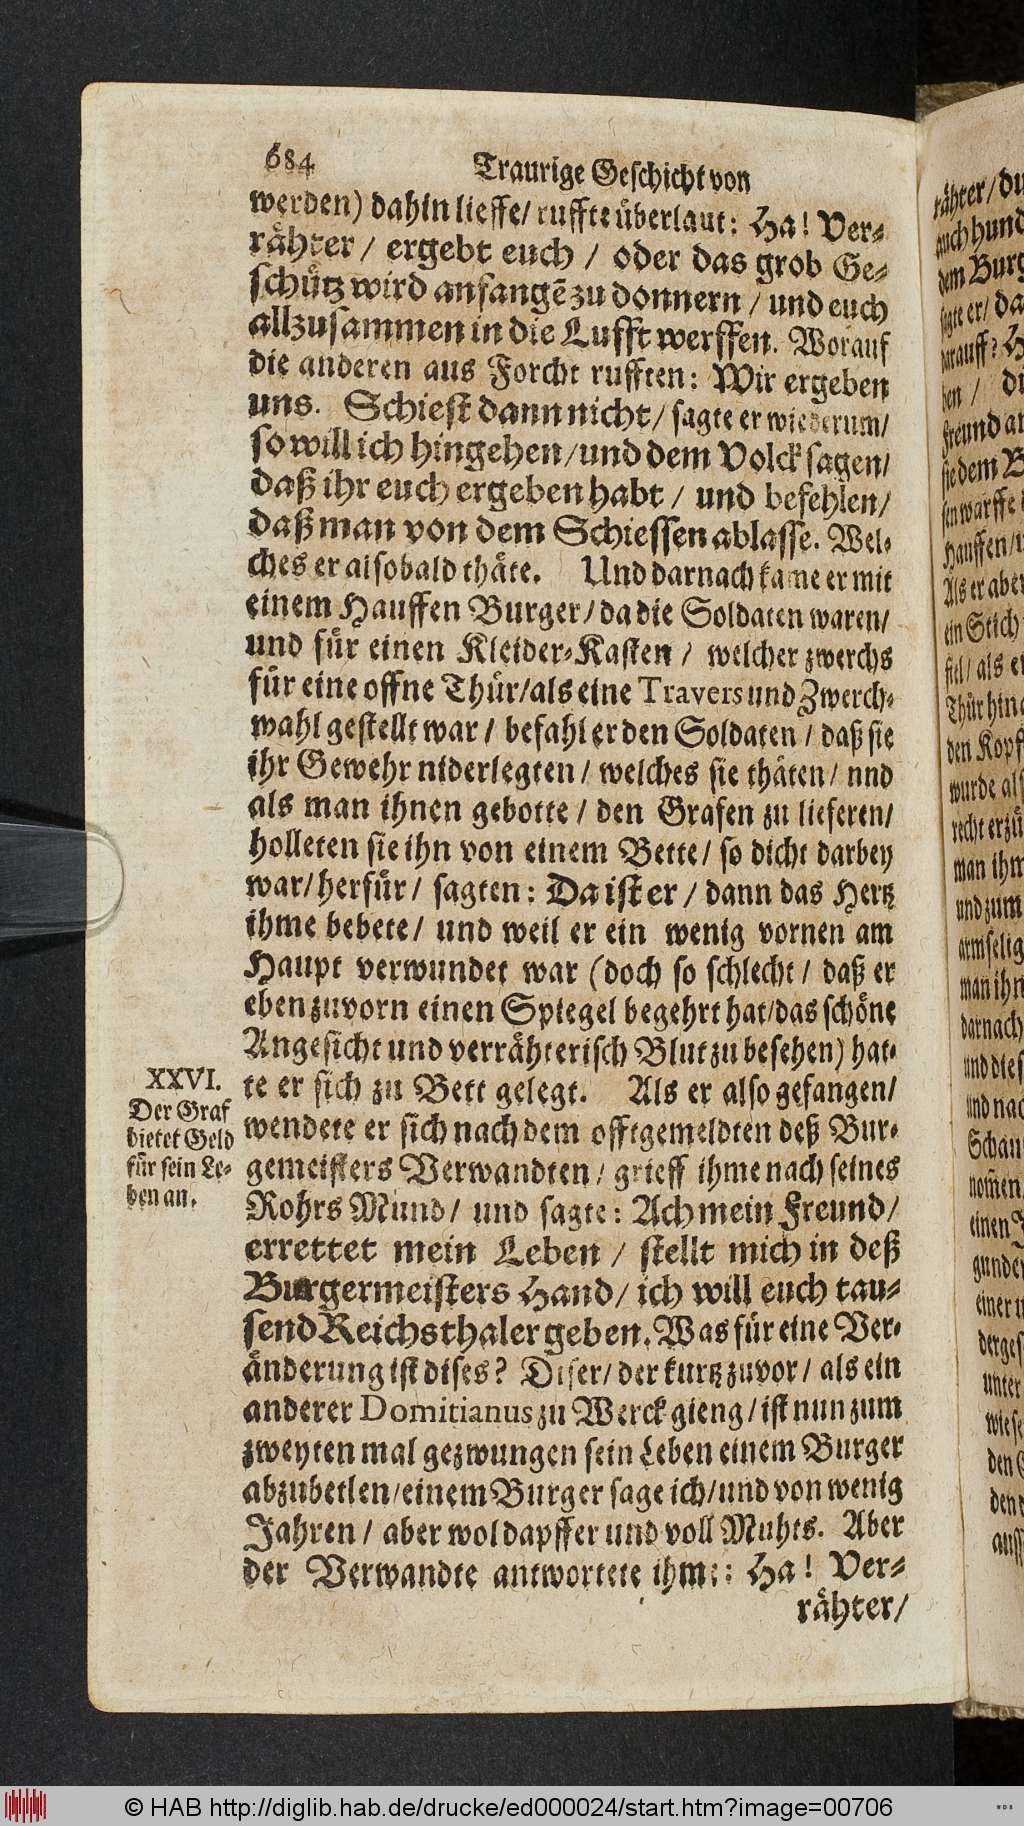 684
Traurige Geschicht von
werden) dahin lieffe/ ruffte überlaut: Ha! Ver-
rähter/ ergebt euch/ oder das grob Ge-
schütz wird anfangẽ zu donnern/ und euch
allzusammen in die Lufft werffen. Worauf
die anderen aus Forcht rufften: Wir ergeben
uns. Schiest dann nicht/ sagte er wiederum/
so will ich hingehen/ und dem Volck sagen/
daß ihr euch ergeben habt/ und befehlen/
daß man von dem Schiessen ablasse. Wel-
ches er alsobald thäte. Und darnach kame er mit
einem Hauffen Burger/ da die Soldaten waren/
und für einen Kleider-Kasten/ welcher zwerchs
für eine offne Thür/ als eine Travers und Zwerch-
wahl gestellt war/ befahl er den Soldaten/ daß sie
ihr Gewehr niderlegten/ welches sie thäten/ nnd
als man ihnen gebotte/ den Grafen zu lieferen/
holleten sie ihn von einem Bette/ so dicht darbey
war/ herfür/ sagten: Da ist er/ dann das Hertz
ihme bebete/ und weil er ein wenig vornen am
Haupt verwundet war (doch so schlecht/ daß er
eben zuvorn einen Spiegel begehrt hat/ das schöne
Angesicht und verrähterisch Blut zu besehen) hat-
te er sich zu Bett gelegt. Als er also gefangen/
wendete er sich nach dem offtgemeldten deß Bur-
gemeisters Verwandten/ grieff ihme nach seines
Rohrs Mund/ und sagte: Ach mein Freund/
errettet mein Leben/ stellt mich in deß
Burgermeisters Hand/ ich will euch tau-
send Reichsthaler geben. Was für eine Ver-
änderung ist dises? Diser/ der kurtz zuvor/ als ein
anderer Domitianus zu Werck gieng/ ist nun zum
zweyten mal gezwungen sein Leben einem Burger
abzubetlen/ einem Burger sage ich/ und von wenig
Jahren/ aber wol dapffer und voll Muhts. Aber
der Verwandte antwortete ihme: Ha! Ver-
rähter/
XXVI.
Der Graf
bietet Geld
für sein Le-
ben an.
© HAB http://diglib.hab.de/drucke/ed000024/start.htm?image=00706